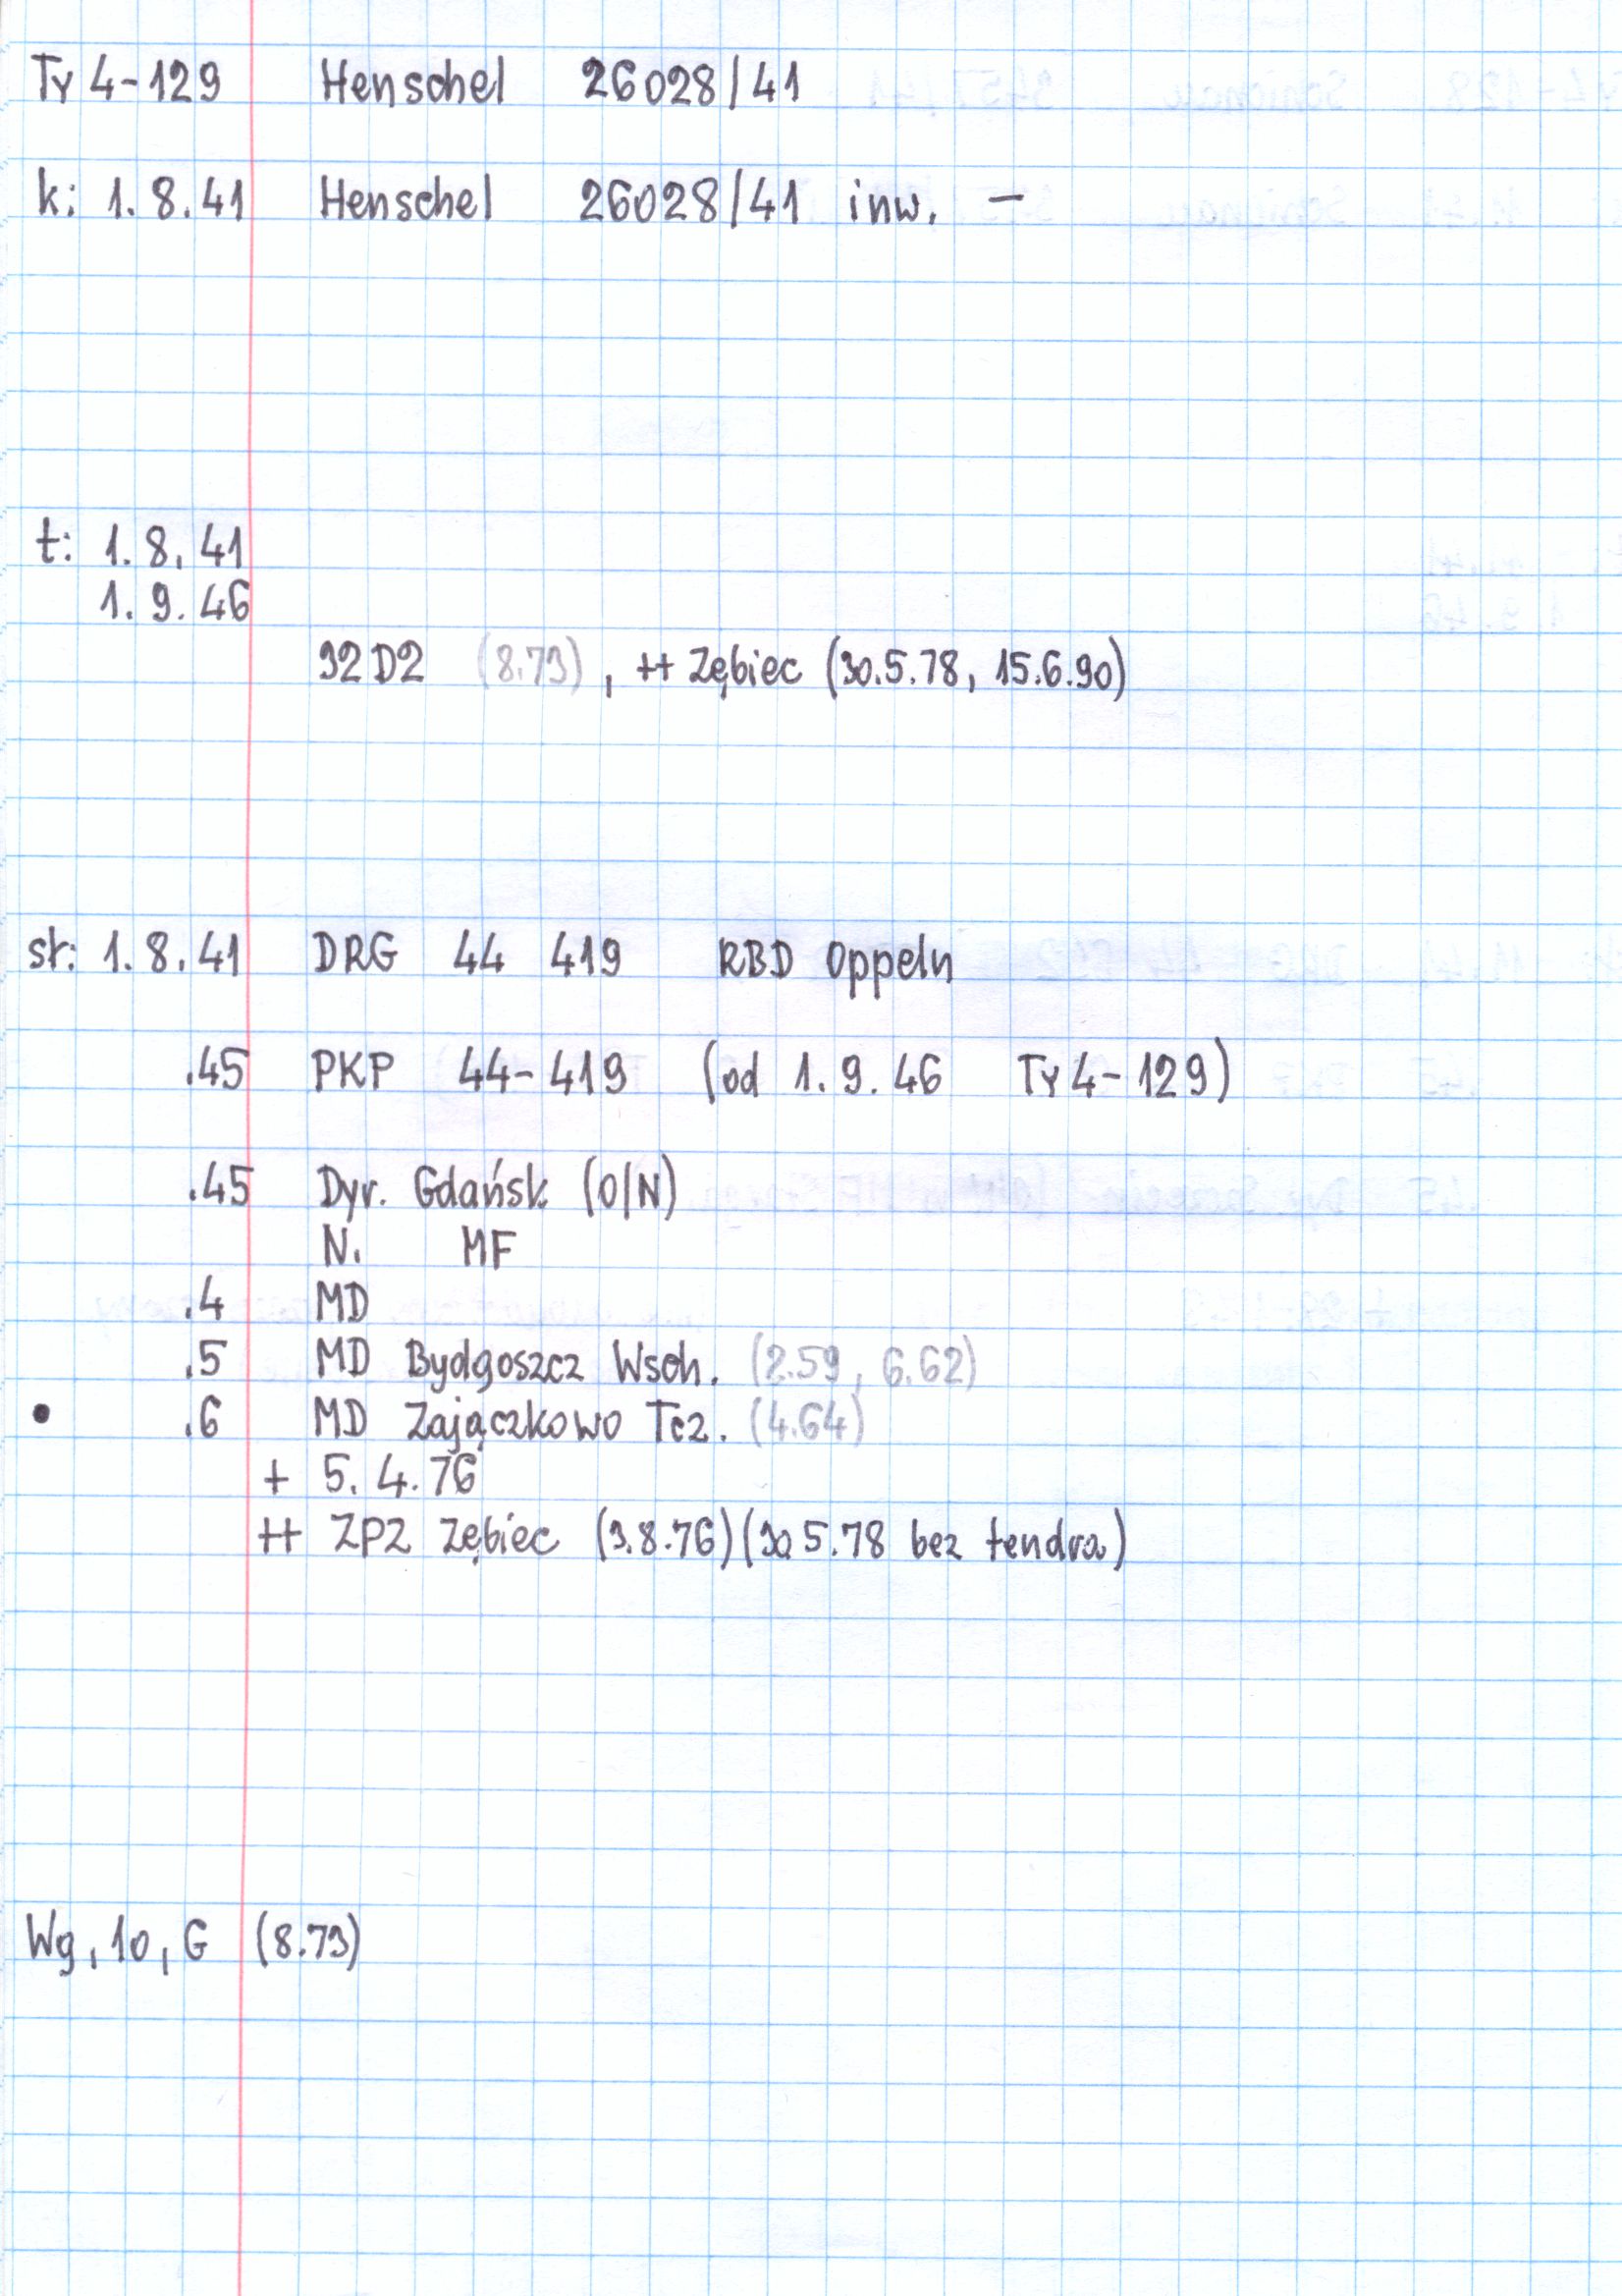 Ty 4-129 Henschel 26028/41
k: 1.8.41 Henschel 26028/41 inw. -
t: 1.8.41
1.9.46
32D2 (8.73), ++ Zębiec (30.5.78, 15.6.90)
st: 1.8.41 DRG 44 419 RBD Oppeln
.45 PKP 44-419 (od 1.9.46 Ty4-129)
.45 Dyr. Gdańsk (O/N)
N. MF
.4 MD
.5 MD Bydgoszcz Wsch. (2.59, 6.62)
• .6 MD Zajączkowo Tcz. (4.64)
+ 5.4.76
++ ZPZ Zębiec (3.8.76) (30.5.78 bez tendra)
Wg, 10, G (8.73)